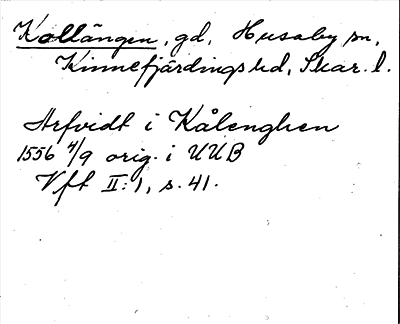 Kollängen, gd, Husaby sn,
Kinnefjärdings hd, Skar. l.
Arfvidt i Kålenghen
1556 4/9 orig. i UUB
Vft II:1, s. 41.